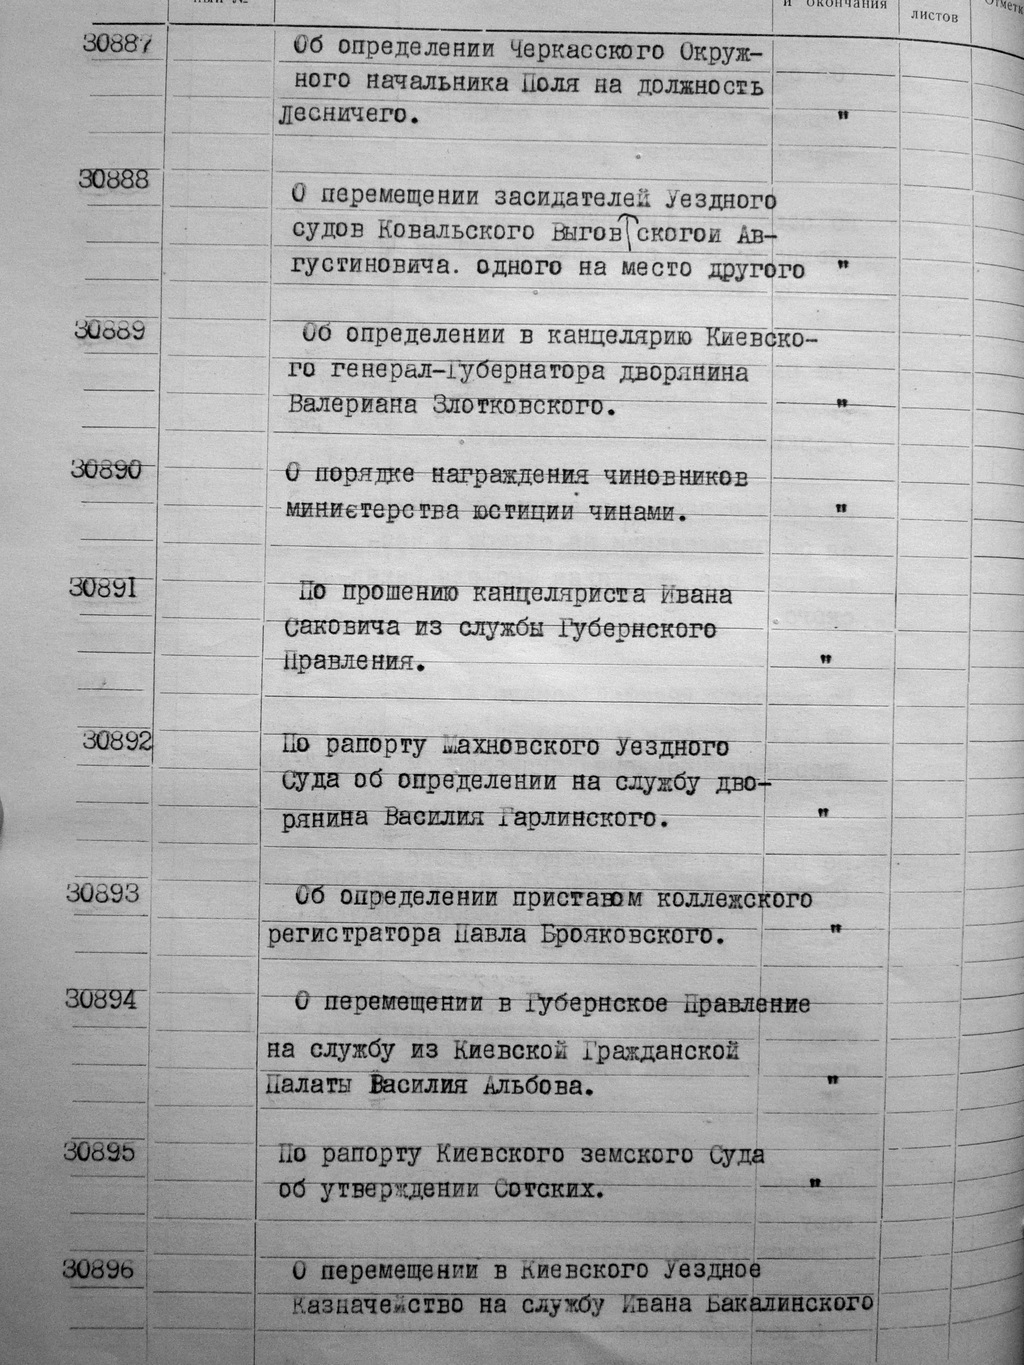 и окончания
листов
30887
Об определении Черкасского Окруж-
ного начальника Поля на должность
Лесничего. "
30888
О перемещении засидателей Уездного
судов Ковальского Выговскогои Ав-
густиновича. одного на место другого "
30889
Об определении в канцелярию Киевско-
го генерал-Губернатора дворянина
Валериана Злотковского. "
30890
О порядке награждения чиновников
министерства юстиции чинами. "
30891
По прошению канцеляриста Ивана
Саковича из службы Губернского
Правления. "
30892
По рапорту Махновского Уездного
Суда об определении на службу дво-
рянина Василия Гарлинского. "
30893
Об определении приставом коллежского
регистратора Павла Брояковского. "
30894
О перемещении в Губернское Правление
на службу из Киевской Гражданской
Палаты Василия Альбова. "
30895
По рапорту Киевского земского Суда
об утверждении Сотских. "
30896
О перемещении в Киевского Уездное
Казначейство на службу Ивана Бакалинского